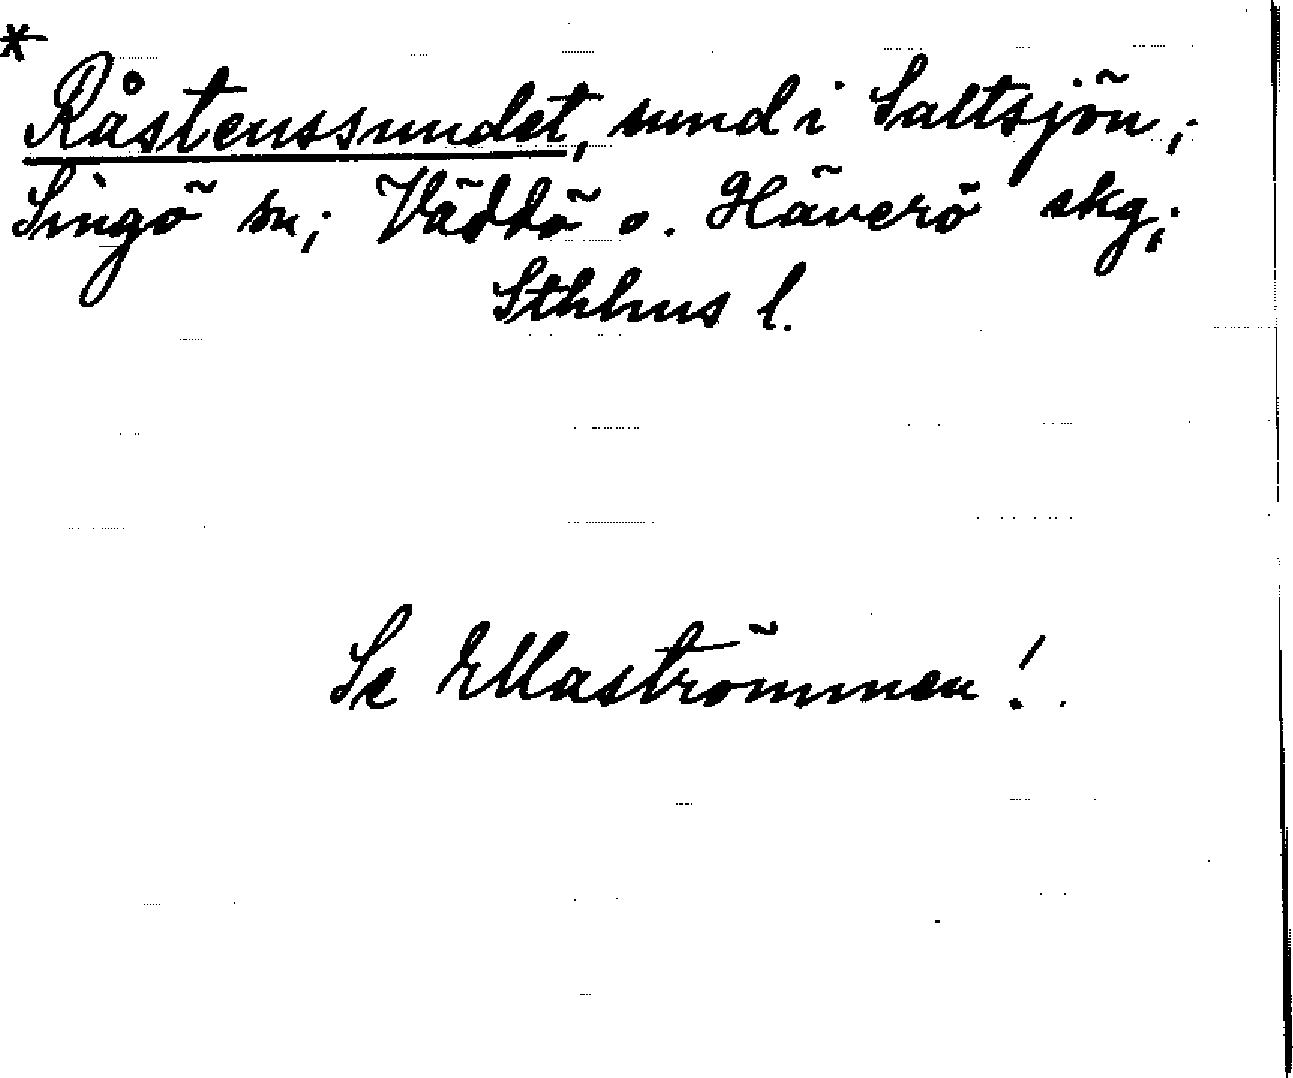 *
Råstenssundet, sund i Saltsjön;
Singö sn; Väddö o. Häverö skg;
Sthlms l.
Se Ellaströmmen!